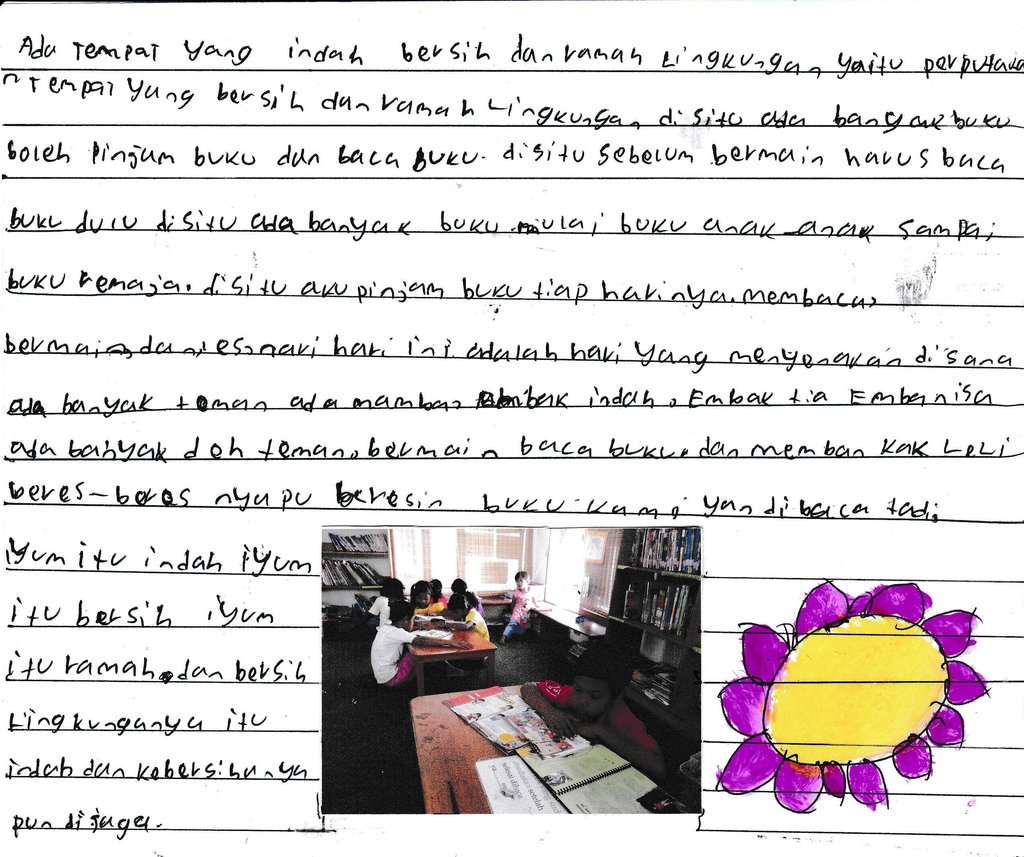 Ada Tempat yang indah bersih dan ramah Lingkungan, yaitu perputaka
n Tempat yang bersih dan ramah Lingkungan, disitu ada banyak buku
boleh pinjam buku dan baca buku. disitu sebelum bermain harus baca
buku dulu disitu ada banyak buku mulai buku anak-anak sampai
buku remaja. disitu aku pinjam buku tiap harinya. membaca,
bermain, dan hari ini adalah hari yang menyenakan disana
ada banyak teman ada mambak indah, Embak tia Embanisa
ada banyak deh teman, bermain baca buku, dan memban kak LeLi
beres-beres nyapu beresin buku kami yan di baca tadi
iyum itu indah iyum
itu bersih iyum
itu ramah, dan bersih
Lingkunganya itu
indah dan kebersihanya
pun dijaga.